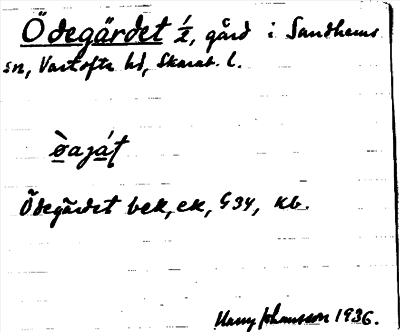 Ödegärdet 1/2, gård i Sandhems
sn, Vartofta hd, Skarab. l.
ø̀aját
Ödegärdet bek, ek, G34, Kb.
Harry Johansson 1936.